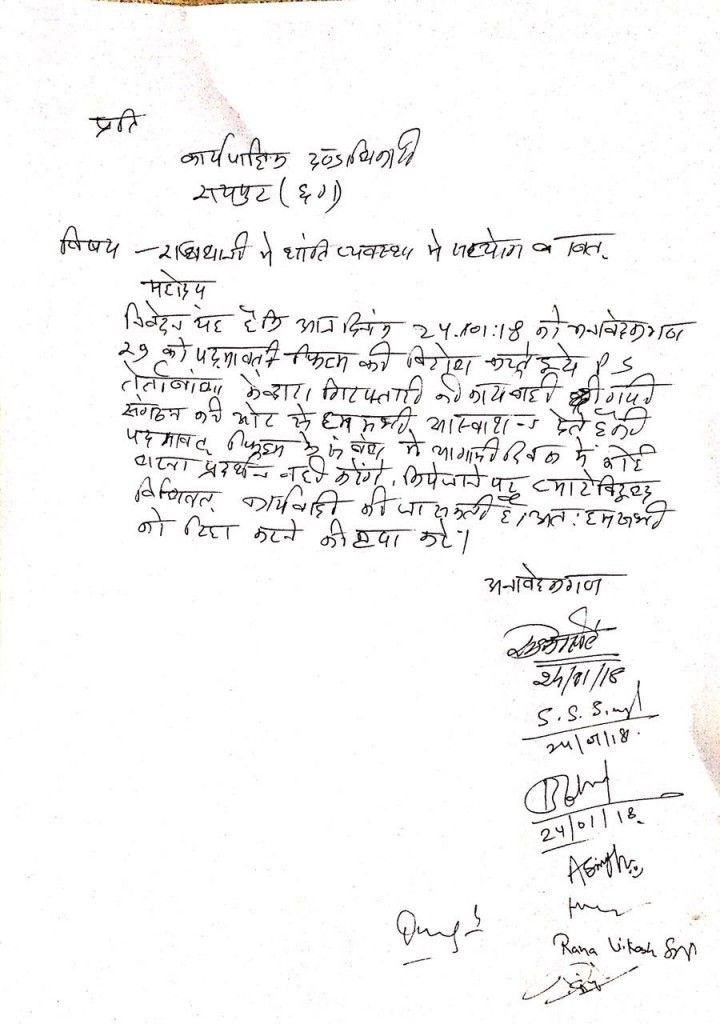 प्रति
कार्यपालिक दण्डाधिकारी
रायपुर (छग)
विषय - राजधानी में शांति व्यवस्था में सहयोग बावत.
महोदय
निवेदन यह है कि आज दिनांक 24.01.18 को अनावेदकगण
29 को पद्मावती फिल्म की विरोध करते हुये P S
के द्वारा गिरफ्तारी की कार्यवाही की गयी
संगठन की ओर से हम सभी आस्वाशन देते है की
पद्मावत फिल्म के संबंध में आगामी दिवस में कोई
धरना प्रदर्शन नही करेंगे, किये जाने पर हमारे विरूद्ध
विधिवत कार्यवाही की जा सकती है। अतः हम सभी
को रिहा करने की कृपा करे।
अनावेदकगण
24/01/18
S. S. Singh
24/01/18.
24/01/18.
ASingh
Rana Vikash Singh